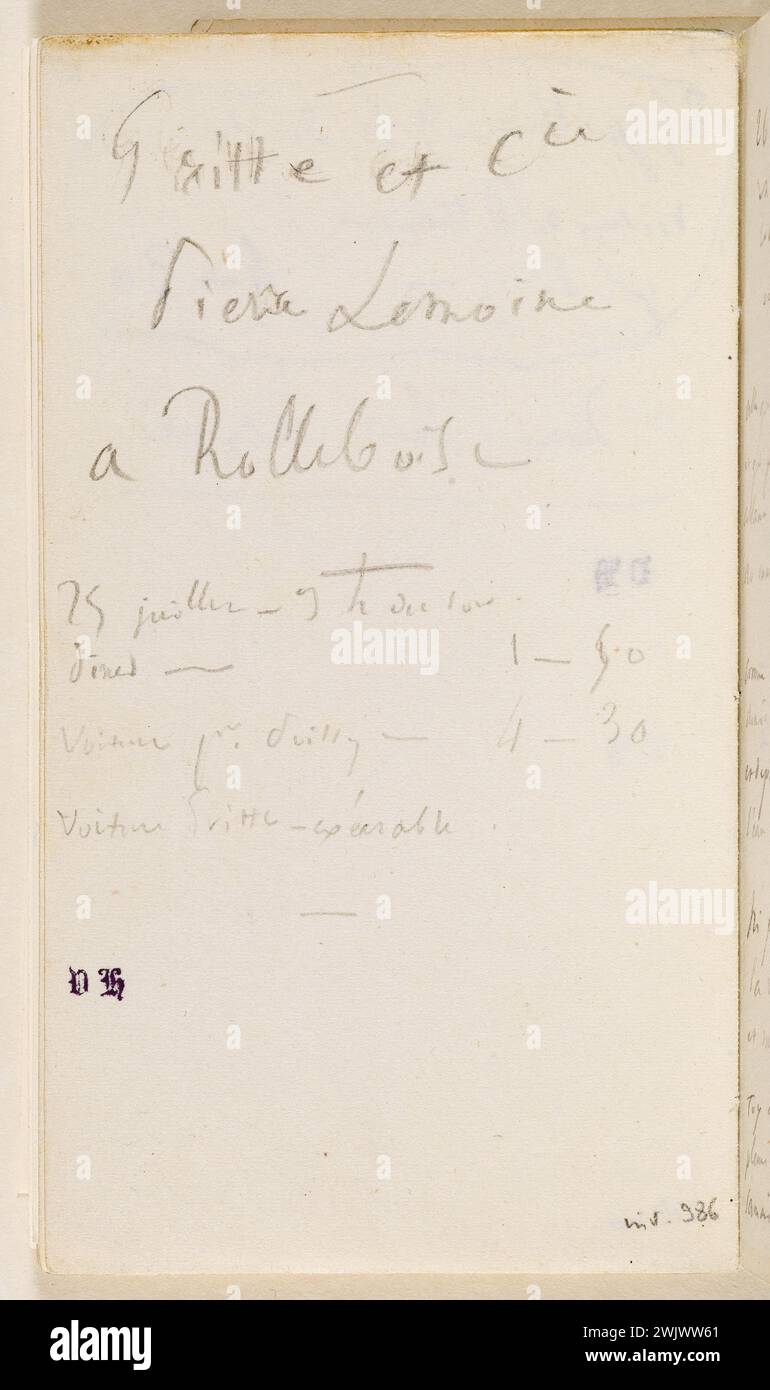 Gritté et Cie
Pierre Lemoine
a Rolleboise
25 juillet - 9 h du soir.
diner — 1 - 50
Voiture pr. — 4 - 30
Voiture Gritté - exécrable.
V H
inv. 986
alamy
Image ID: 2WJWW61
www.alamy.com